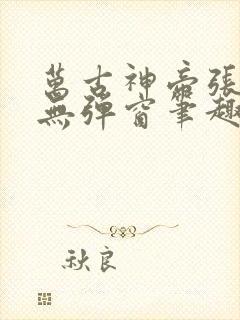 萬古神帝張
無彈窗筆趣
秋良